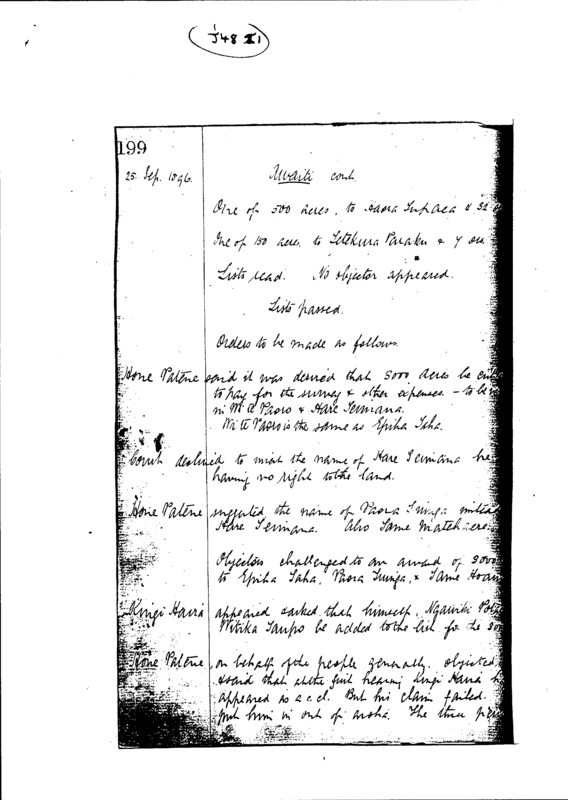 J48 1
199
25 Sep. 1896. Uwaiti cont.
One of 500 acres, to Haora Tupaea &
One of 150 acres to Paraku & 7
Lists read. No objector appeared.
Lists passed.
Orders to be made as follows.
Hone Patene said it was desired that 5000 acres be
to pay for the survey & other expenses. - to be
in Wi te Paoro & Hare Teimana.
Wi te Paoro is the same as Epiha Taha.
Court declined to insert the name of Hare Teimana he
having no right to the land.
Hone Patene suggested the name of Paora Tunga instead
Hare Teimana. Also Tame
Objectors challenged to an award of
to Epiha Taha, Paora Tunga, & Tame
Kingi Haira appeared & asked that himself,
Taupo be added to the list for the
Hone Patene, on behalf of the people generally, objected
& said that at the first hearing Kingi Haira
appeared as a c.cl. But his claim failed.
put him in out of aroha. The three